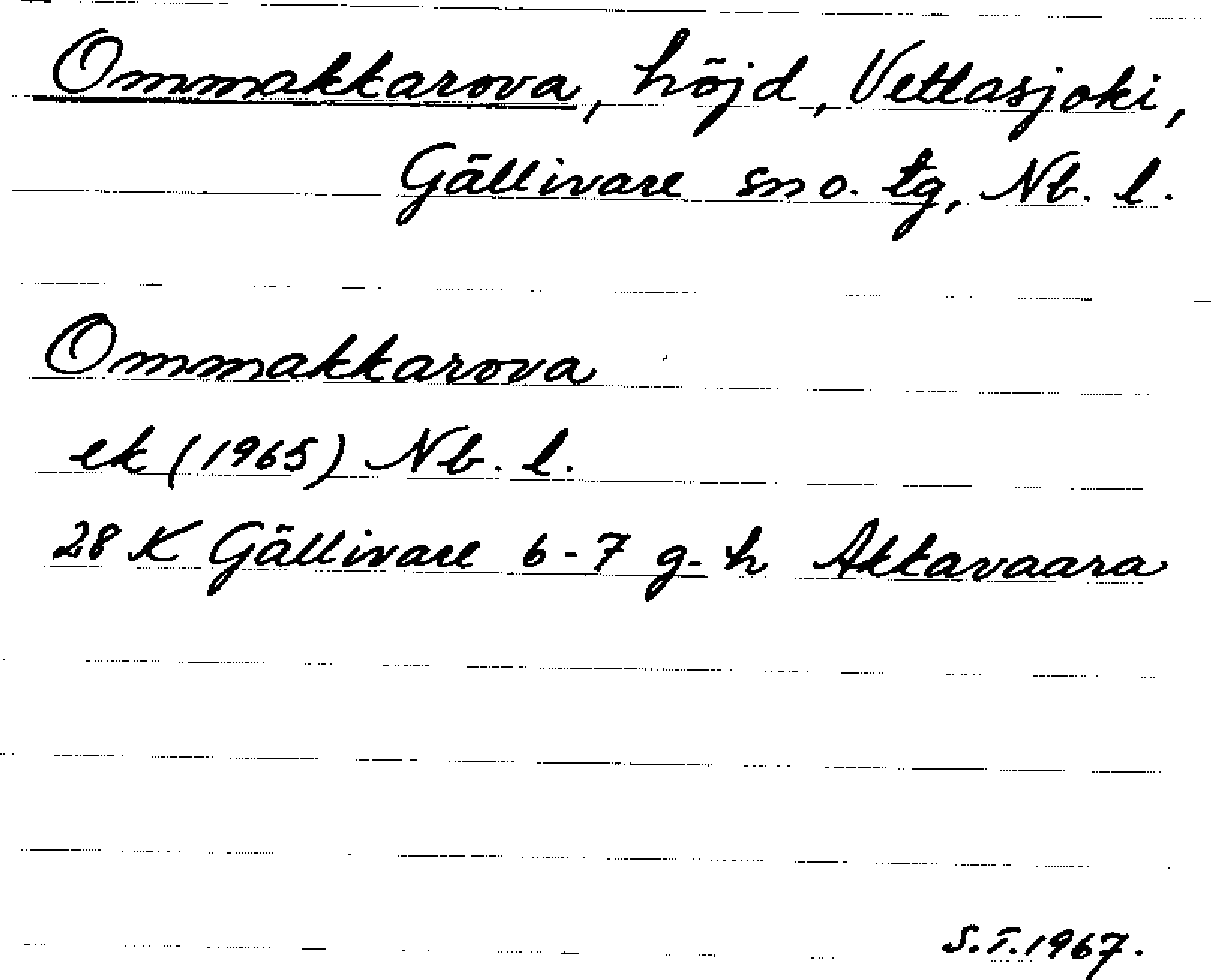 Ommakkarova, höjd, Vettasjoki,
Gällivare sn o. tg, Nb. l.
Ommakkarova
ek (1965) Nb. l.
28 K Gällivare 6-7 g-h Akkavaara
S.T.1967.